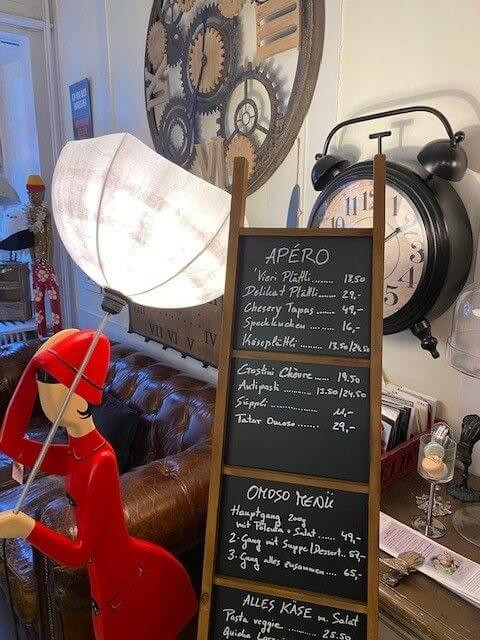 APÉRO
'Vieri Plättli ........ 18.50
Delikat Plättli ....... 29.-
Chesery Tapas ...... 49,-
Speckkuchen ....... 16,-
Käseplättli ...... 13.50/24.50
Crostini Chèvre ...... 19.50
Antipasti ......... 13.50/24.50
Süppli ................ 11,-
Tatar Omoso ....... 29,-
OMOSO MENÜ
Hauptgang 200g
mit Polenta + Salat ...... 49,-
2-Gang mit Suppe/Dessert.. 57,-
3-Gang alles zusammen .... 65,-
ALLES KÄSE m. Salat
Pasta veggie ...... 25.50
Quiche
VII VI V IIII